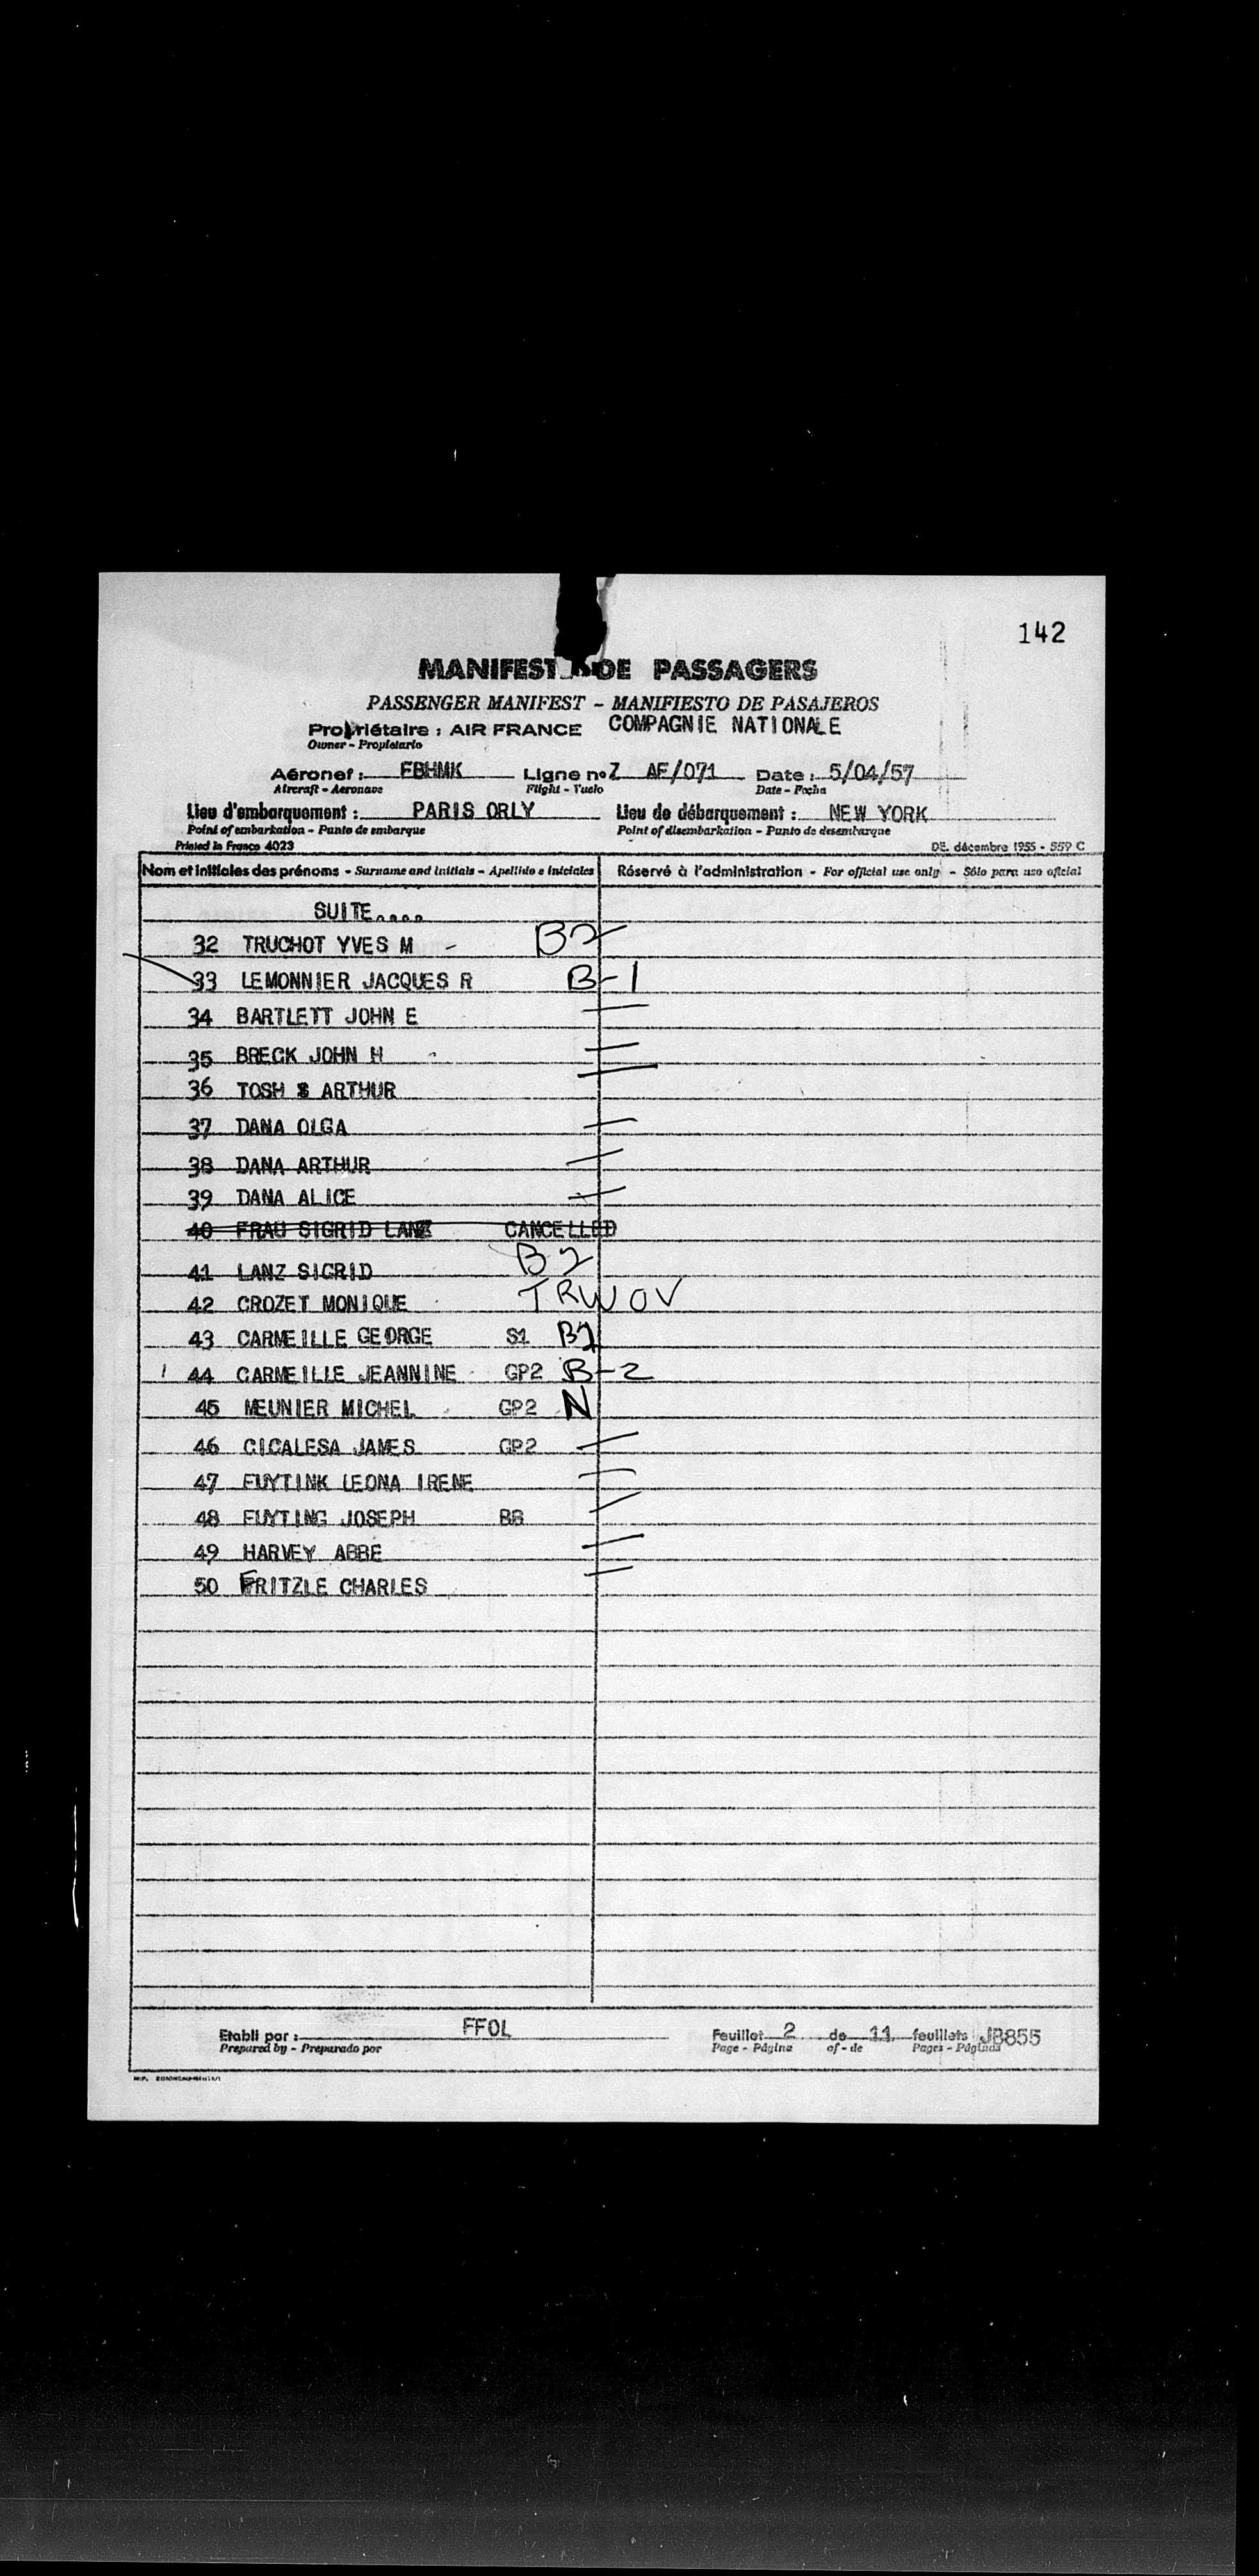 142
MANIFEST DE PASSAGERS
PASSENGER MANIFEST - MANIFIESTO DE PASAJEROS
Propriétaire : AIR FRANCE COMPAGNIE NATIONALE
Owner - Propietario
Aéronef : FBHMK Ligne no Z AF/071 Date : 5/04/57
Aircraft - Aeronave Flight - Vuelo Date - Fecha
Lieu d'embarquement : PARIS ORLY Lieu de débarquement : NEW YORK
Point of embarkation - Punto de embarque Point of disembarkation - Punto de desembarque
Printed in France 4023 DE. décembre 1955 - 559 C
Nom et initiales des prénoms - Surname and initials - Apellido e iniciales Réservé à l'administration - For official use only - Sólo para uso oficial
SUITE....
32 TRUCHOT YVES M - B2
33 LEMONNIER JACQUES R B-1
34 BARTLETT JOHN E
35 BRECK JOHN H
36 TOSH S ARTHUR
37 DANA OLGA
38 DANA ARTHUR
39 DANA ALICE
40 FRAU SIGRID LANZ CANCELLED
41 LANZ SIGRID B2
42 CROZET MONIQUE TRWOV
43 CARMEILLE GEORGE S1 B2
44 CARMEILLE JEANNINE GP2 B-2
45 MEUNIER MICHEL GP2 N
46 CICALESA JAMES GP2
47 FUYTINK LEONA IRENE
48 FUYTING JOSEPH BB
49 HARVEY ABBE
50 FRITZLE CHARLES
Etabli par : FFOL Feuillet 2 de 11 feuillets JB855
Prepared by - Preparado por Page - Página of - de Pages - Páginas